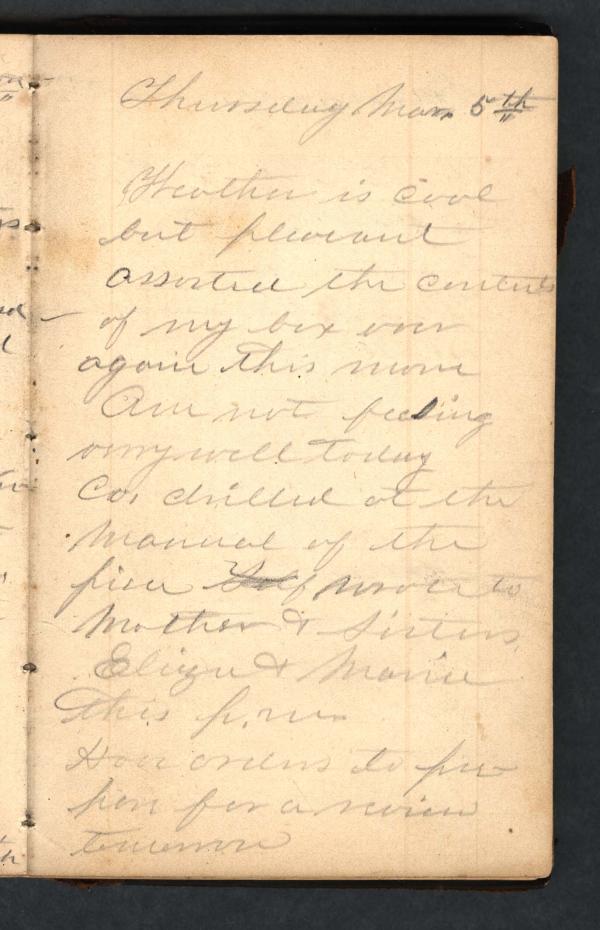 Thursday Mar. 5th
Weather is cool
but pleasant
assorted the contents
of my box over
again this morn
Am not feeling
very well today
Co. drilled at the
Manual of the
piece wrote to
Mother & Sisters
Eliza & Maria
this p.m.
Have orders to pre
pare for a review
tomorrow